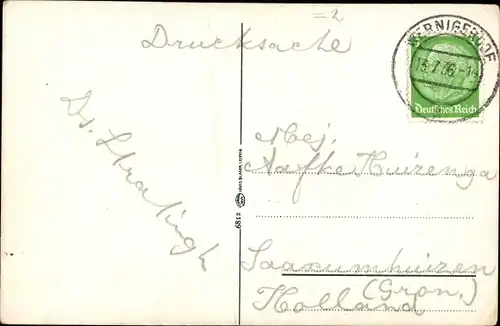 =2
Drucksache
WERNIGERODE
13.7.36.-14
Deutsches Reich
Ds. Stratingh
Mej.
Aafke Huizenga
6812
Saaxumhuizen
(Gron.)
Holland